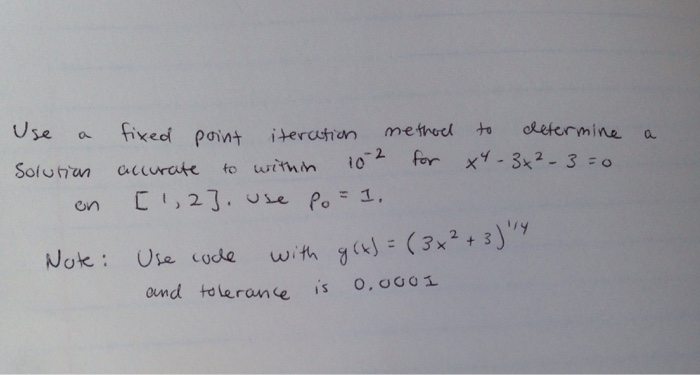 Use a fixed point iteration method to determine a
Solution accurate to within 10⁻² for x⁴ - 3x² - 3 = 0
on [1, 2]. Use p₀ = 1.
Note: Use code with g(x) = (3x² + 3)^1/4
and tolerance is 0.0001